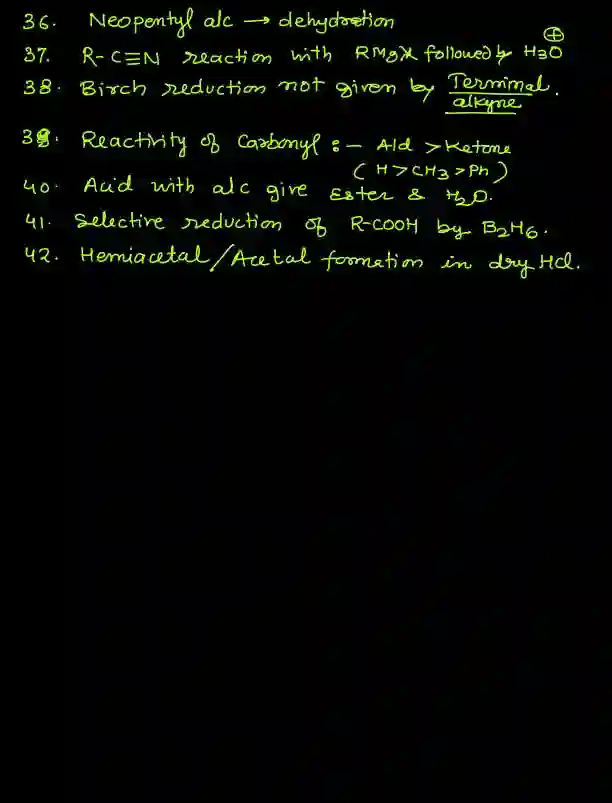 36. Neopentyl alc → dehydration
37. R-C≡N reaction with RMgX followed by H3O⊕
38. Birch reduction not given by Terminal
alkyne.
39. Reactivity of Carbonyl :- Ald > Ketone
( H > CH3 > Ph )
40. Acid with alc give Ester & H2O.
41. Selective reduction of R-COOH by B2H6.
42. Hemiacetal/Acetal formation in dry HCl.